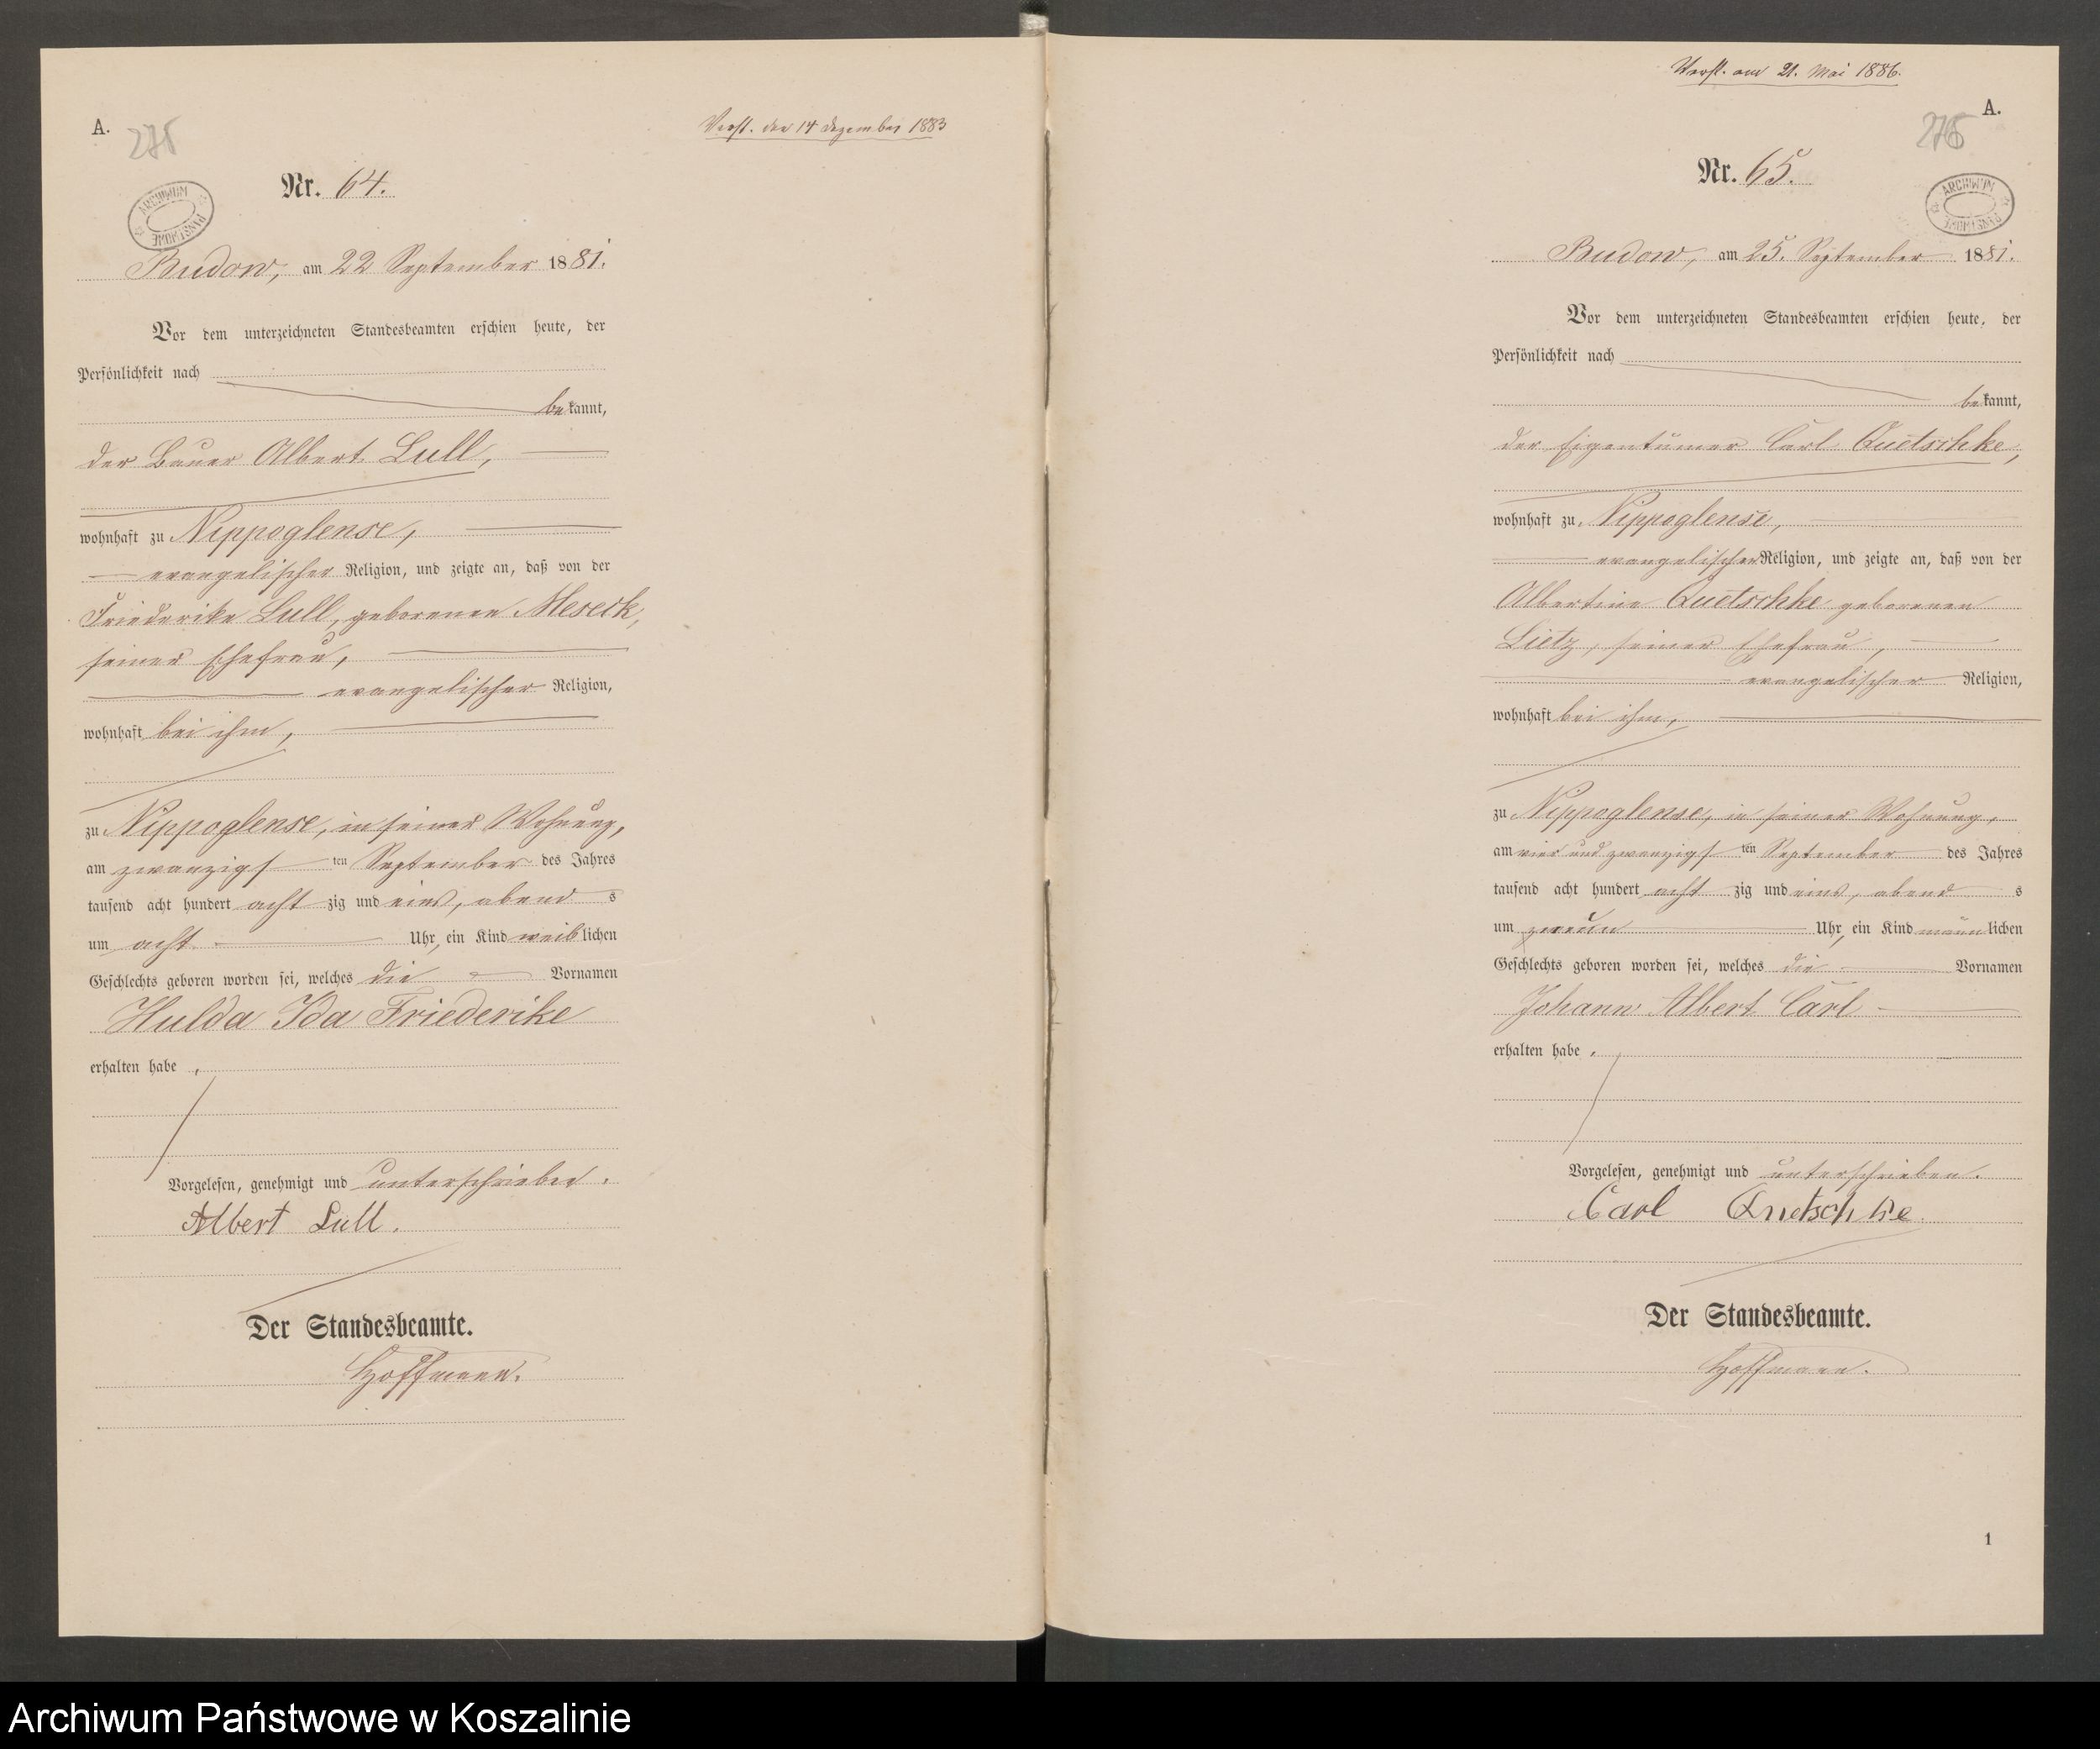 A.
275
Verst. den 14 Dezember 1883
Nr. 64.
ARCHIWUM PAŃSTWOWE
Budow, am 22 September 1881.
Vor dem unterzeichneten Standesbeamten erschien heute, der
Persönlichkeit nach
bekannt,
der Bauer Albert Lull,
wohnhaft zu Nippoglense,
evangelischer Religion, und zeigte an, daß von der
Friederike Lull, geborenen Meseck,
seiner Ehefrau,
evangelischer Religion,
wohnhaft bei ihm,
zu Nippoglense, in seiner Wohnung,
am zwanzigsten September des Jahres
tausend acht hundert acht zig und eins, abend s
um acht Uhr, ein Kind weiblichen
Geschlechts geboren worden sei, welches die Vornamen
Hulda Ida Friederike
erhalten habe,
Vorgelesen, genehmigt und unterschrieben.
Albert Lull.
Der Standesbeamte.
Hoffmann.
Verst. am 21. Mai 1886.
A.
276
Nr. 65.
ARCHIWUM PAŃSTWOWE
Budow, am 25. September 1881.
Vor dem unterzeichneten Standesbeamten erschien heute, der
Persönlichkeit nach
bekannt,
der Eigentümer Carl Quetschke,
wohnhaft zu Nippoglense,
evangelischer Religion, und zeigte an, daß von der
Albertine Quetschke geborenen
Lietz, seiner Ehefrau,
evangelischer Religion,
wohnhaft bei ihm,
zu Nippoglense, in seiner Wohnung,
am vier und zwanzigsten September des Jahres
tausend acht hundert acht zig und eins, abend s
um Uhr, ein Kind männlichen
Geschlechts geboren worden sei, welches die Vornamen
Johann Albert Carl
erhalten habe,
Vorgelesen, genehmigt und unterschrieben.
Carl Quetschke.
Der Standesbeamte.
Hoffmann.
1
Archiwum Państwowe w Koszalinie